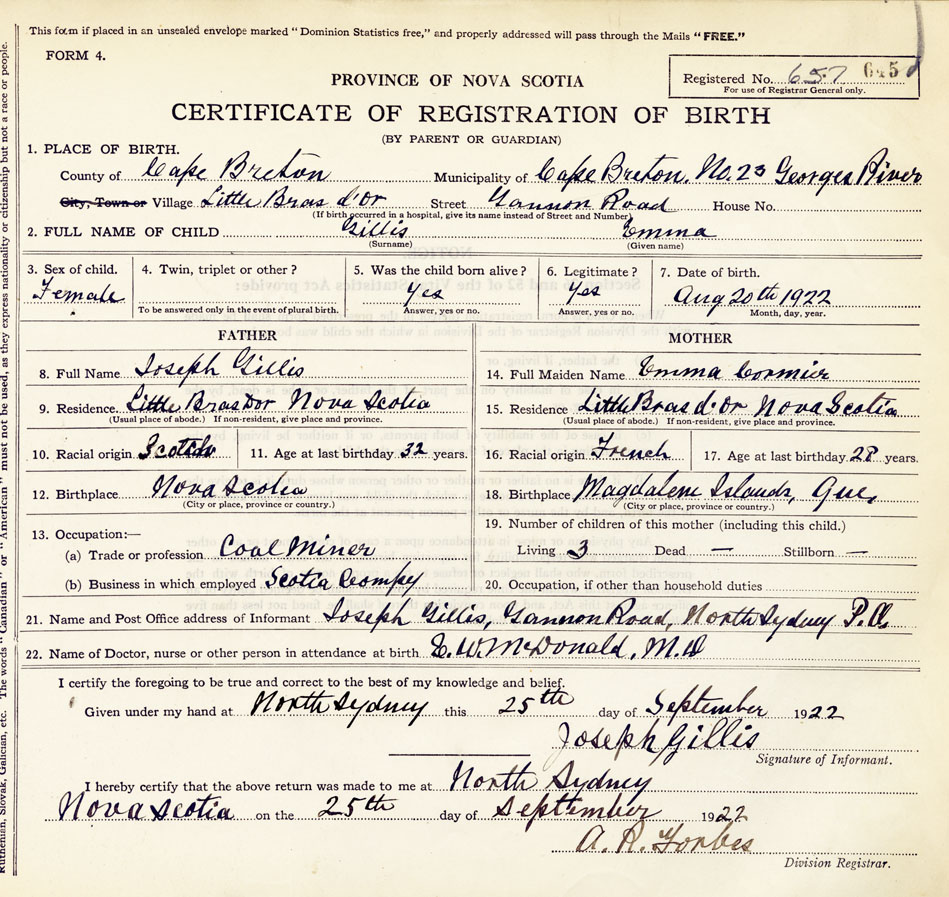 This form if placed in an unsealed envelope marked “Dominion Statistics free,” and properly addressed will pass through the Mails “FREE.”
FORM 4.
Registered No. 657
For use of Registrar General only.
PROVINCE OF NOVA SCOTIA
CERTIFICATE OF REGISTRATION OF BIRTH
(BY PARENT OR GUARDIAN)
1. PLACE OF BIRTH.
County of Cape Breton Municipality of Cape Breton. No. 23 Georges River
City, Town or Village Little Bras d'Or Street Gannon Road House No.
(If birth occurred in a hospital, give its name instead of Street and Number)
2. FULL NAME OF CHILD Gillis Emma
(Surname) (Given name)
3. Sex of child. 4. Twin, triplet or other? 5. Was the child born alive? 6. Legitimate? 7. Date of birth.
Female Yes Yes Aug 20th 1922
To be answered only in the event of plural birth. Answer, yes or no. Answer, yes or no. Month, day, year.
FATHER
8. Full Name Joseph Gillis
9. Residence Little Bras Dor Nova Scotia
(Usual place of abode.) If non-resident, give place and province.
10. Racial origin Scotch 11. Age at last birthday 32 years.
12. Birthplace Nova Scotia
(City or place, province or country.)
13. Occupation:—
(a) Trade or profession Coal Miner
(b) Business in which employed Scotia Compy
MOTHER
14. Full Maiden Name Emma Cormier
15. Residence Little Bras d'Or Nova Scotia
(Usual place of abode.) If non-resident, give place and province.
16. Racial origin French 17. Age at last birthday 28 years.
18. Birthplace Magdalene Islands, Que,
(City or place, province or country.)
19. Number of children of this mother (including this child.)
Living 3 Dead — Stillborn —
20. Occupation, if other than household duties
21. Name and Post Office address of Informant Joseph Gillis, Gannon Road, North Sydney P.O.
22. Name of Doctor, nurse or other person in attendance at birth E. W. McDonald, M.D
I certify the foregoing to be true and correct to the best of my knowledge and belief.
Given under my hand at North Sydney this 25th day of September 1922
Joseph Gillis
Signature of Informant.
I hereby certify that the above return was made to me at North Sydney
Nova Scotia on the 25th day of September 1922
A. R. Forbes
Division Registrar.
Ruthenian, Slovak, Galician, etc. The words “Canadian” or “American” must not be used, as they express nationality or citizenship but not a race or people.